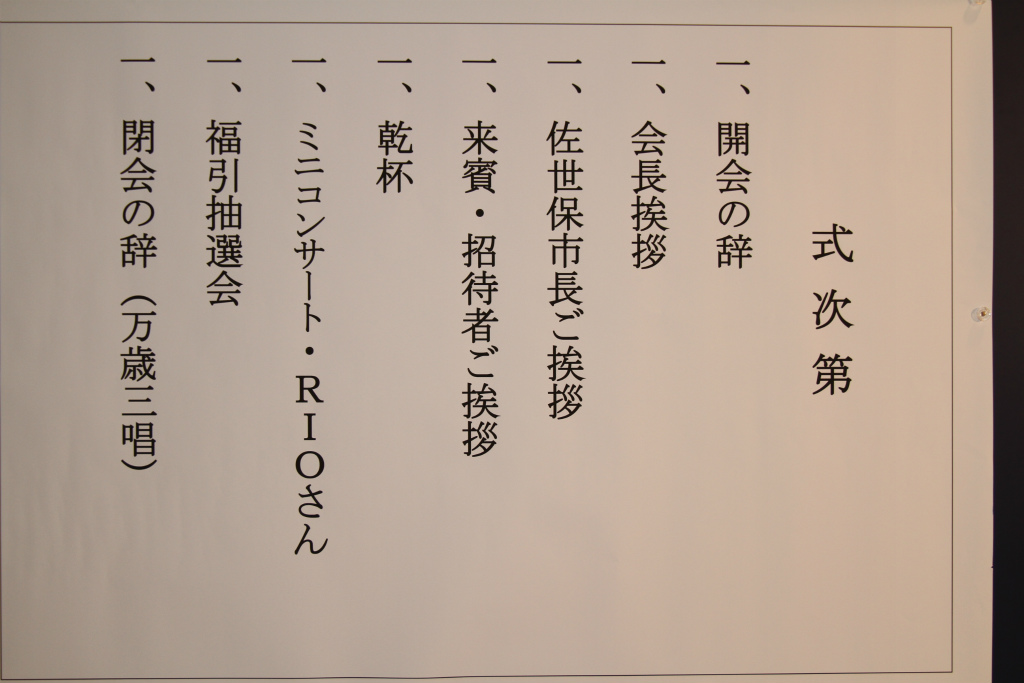 式次第
一、開会の辞
一、会長挨拶
一、佐世保市長ご挨拶
一、来賓・招待者ご挨拶
一、乾杯
一、ミニコンサート・RIOさん
一、福引抽選会
一、閉会の辞（万歳三唱）